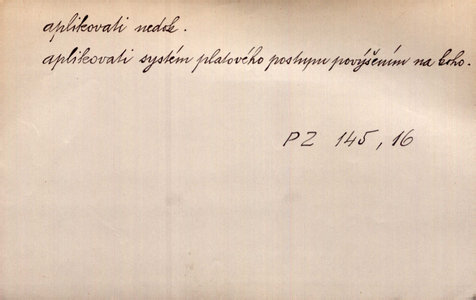 aplikovati nedok.
aplikovati systém platového postupu povýšením na koho.
PZ 145, 16